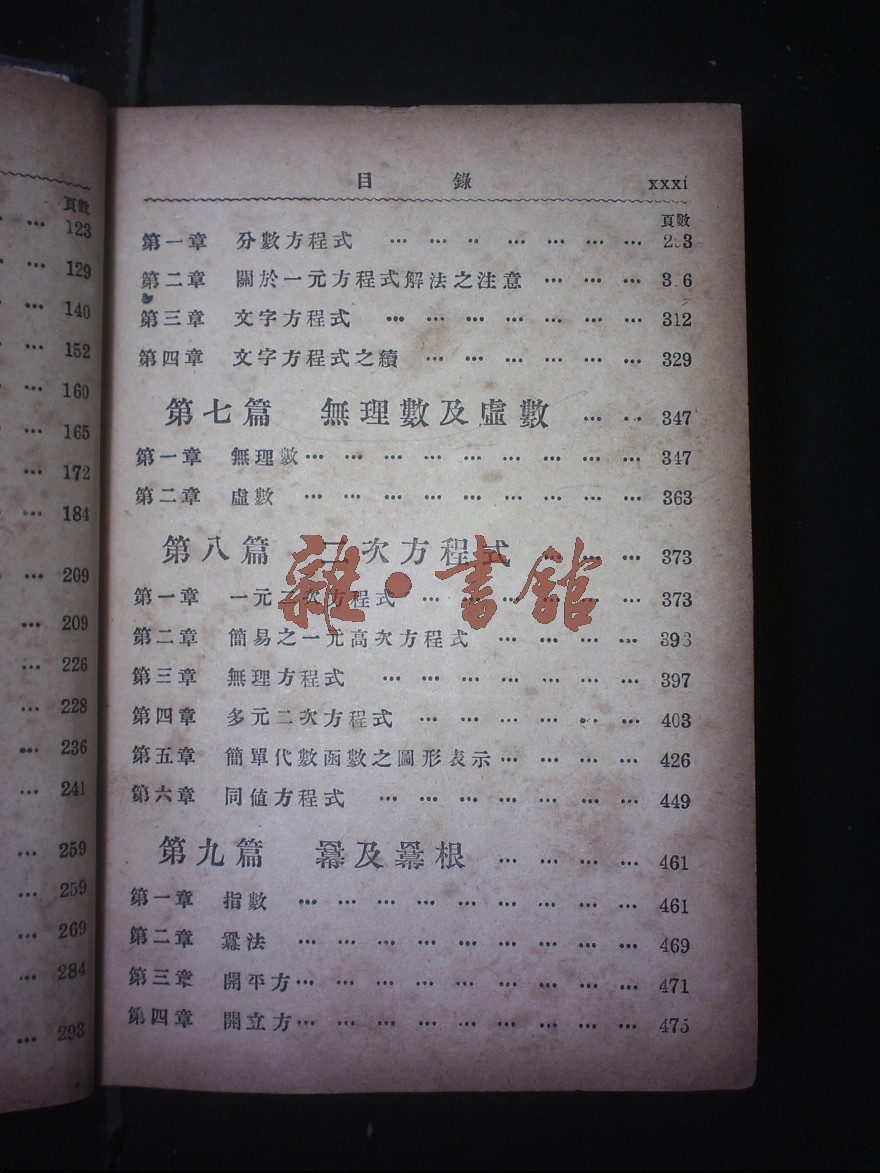 頁數
123
129
140
152
160
165
172
184
209
209
226
228
236
241
259
259
269
284
293
目 錄 xxxi
頁數
第一章 分數方程式 … … … … … … … 293
第二章 關於一元方程式解法之注意 … … … 306
第三章 文字方程式 … … … … … … … 312
第四章 文字方程式之續 … … … … … … 329
第七篇 無理數及虛數 … … 347
第一章 無理數 … … … … … … … … … 347
第二章 虛數 … … … … … … … … … 363
第八篇 二次方程式 … … … 373
第一章 一元二次方程式 … … … … … … 373
第二章 簡易之一元高次方程式 … … … … 393
第三章 無理方程式 … … … … … … … 397
第四章 多元二次方程式 … … … … … … 403
第五章 簡單代數函數之圖形表示 … … … … 426
第六章 同値方程式 … … … … … … … 449
第九篇 羃及羃根 … … … … 461
第一章 指數 … … … … … … … … … 461
第二章 羃法 … … … … … … … … … 469
第三章 開平方 … … … … … … … … … 471
第四章 開立方 … … … … … … … … … 475
雜·書館